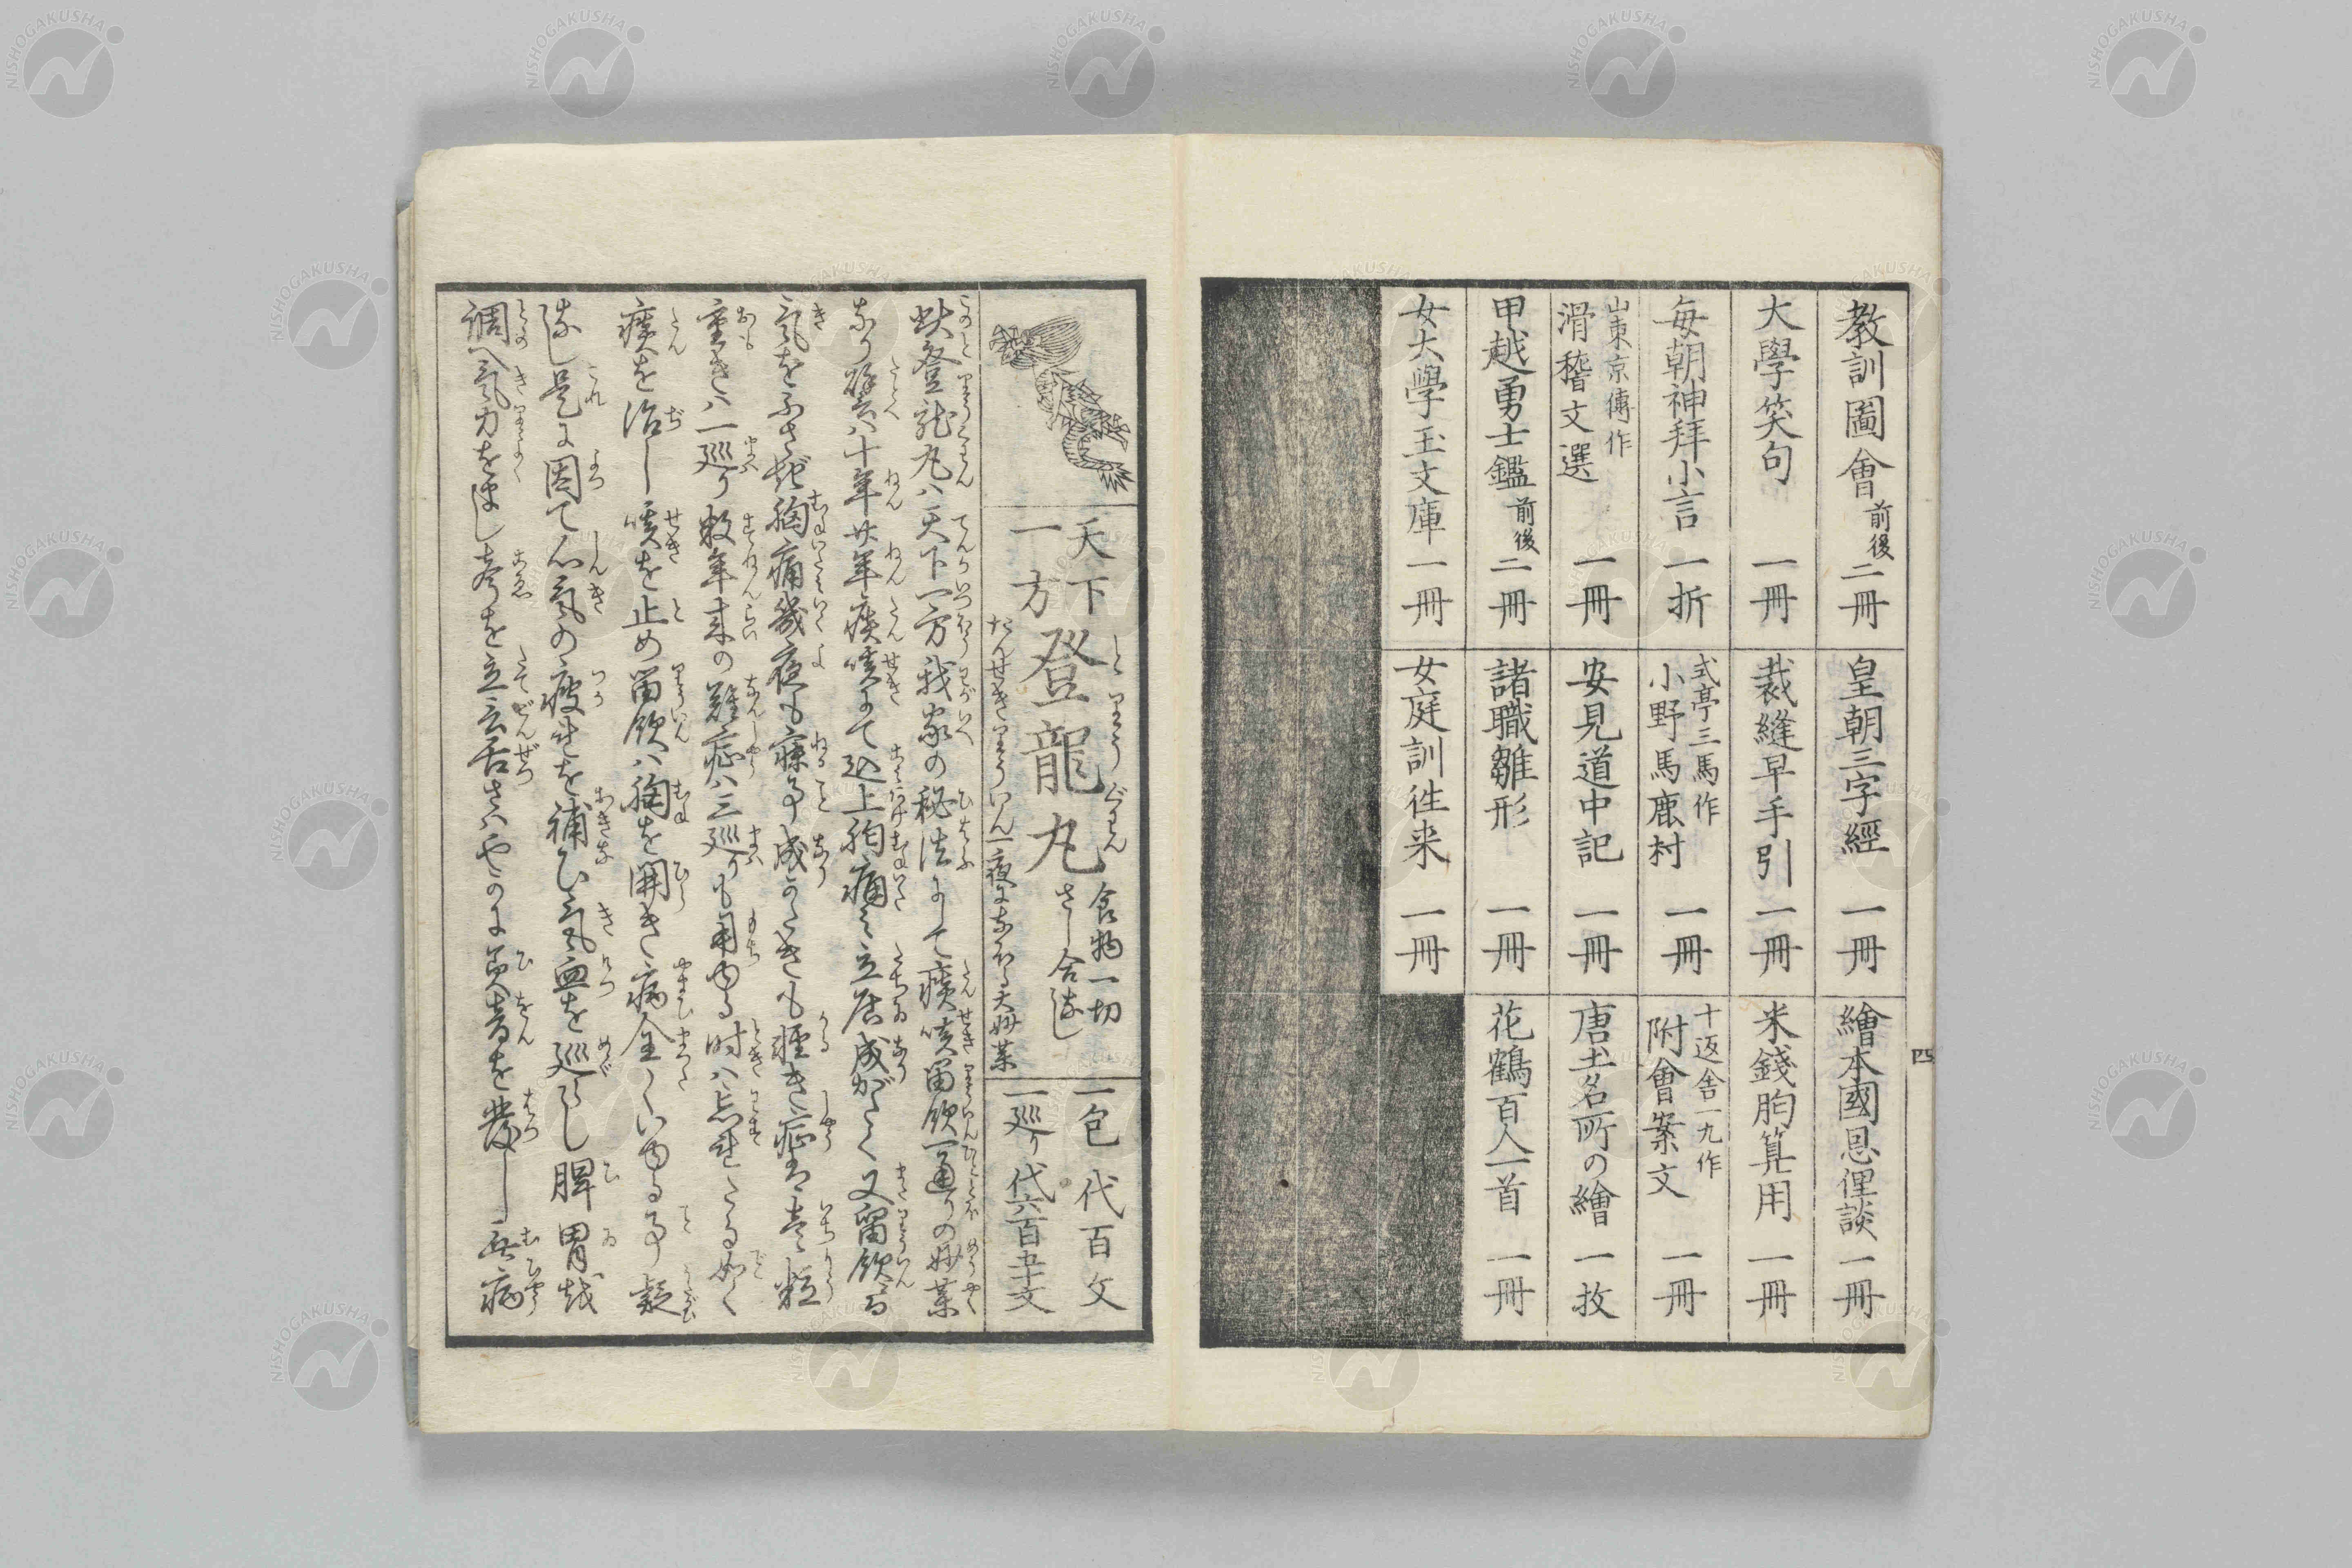 教訓圖會 前後 二冊
大學笑句 一冊
毎朝神拜小言 一折
山東京傳作
滑稽文選 一冊
甲越勇士鑑 前後 二冊
女大學玉文庫 一冊
皇朝三字經 一冊
裁縫早手引 一冊
式亭三馬作
小野馬鹿村 一冊
安見道中記 一冊
諸職雛形 一冊
女庭訓徃来 一冊
繪本國恩俚談 一冊
米錢胸算用 一冊
十返舎一九作
附會案文 一冊
唐土名所の繪 一枚
花鶴百人一首 一冊
四
天下
一方
登龍丸
とりうぐわん
食物一切
さし合なし
たんせきりういん一夜になおる天妙薬
一包 代百文
一廻り 代六百五十文
此登龍丸ハ天下一方我家の秘法にして痰咳留飲一通りの妙薬
なり譬ハ十年廿年痰咳にて込上胸痛み立居成がたく又留飲にて
氣をふさぎ胸痛幾夜も寐る事成がたきも軽き症ハ壱粒
重きハ一廻り数年来の難症ハ三廻りも用ゆる時ハ忘れたる如く
痰を治し咳を止め留飲ハ胸を開き病全くいゆる事疑
なし是に因て心氣の疲れを補ひ氣血を廻らし脾胃を
調へ氣力をまし声を立言舌さハやかに美音を發し無病
NISHOGAKUSHA